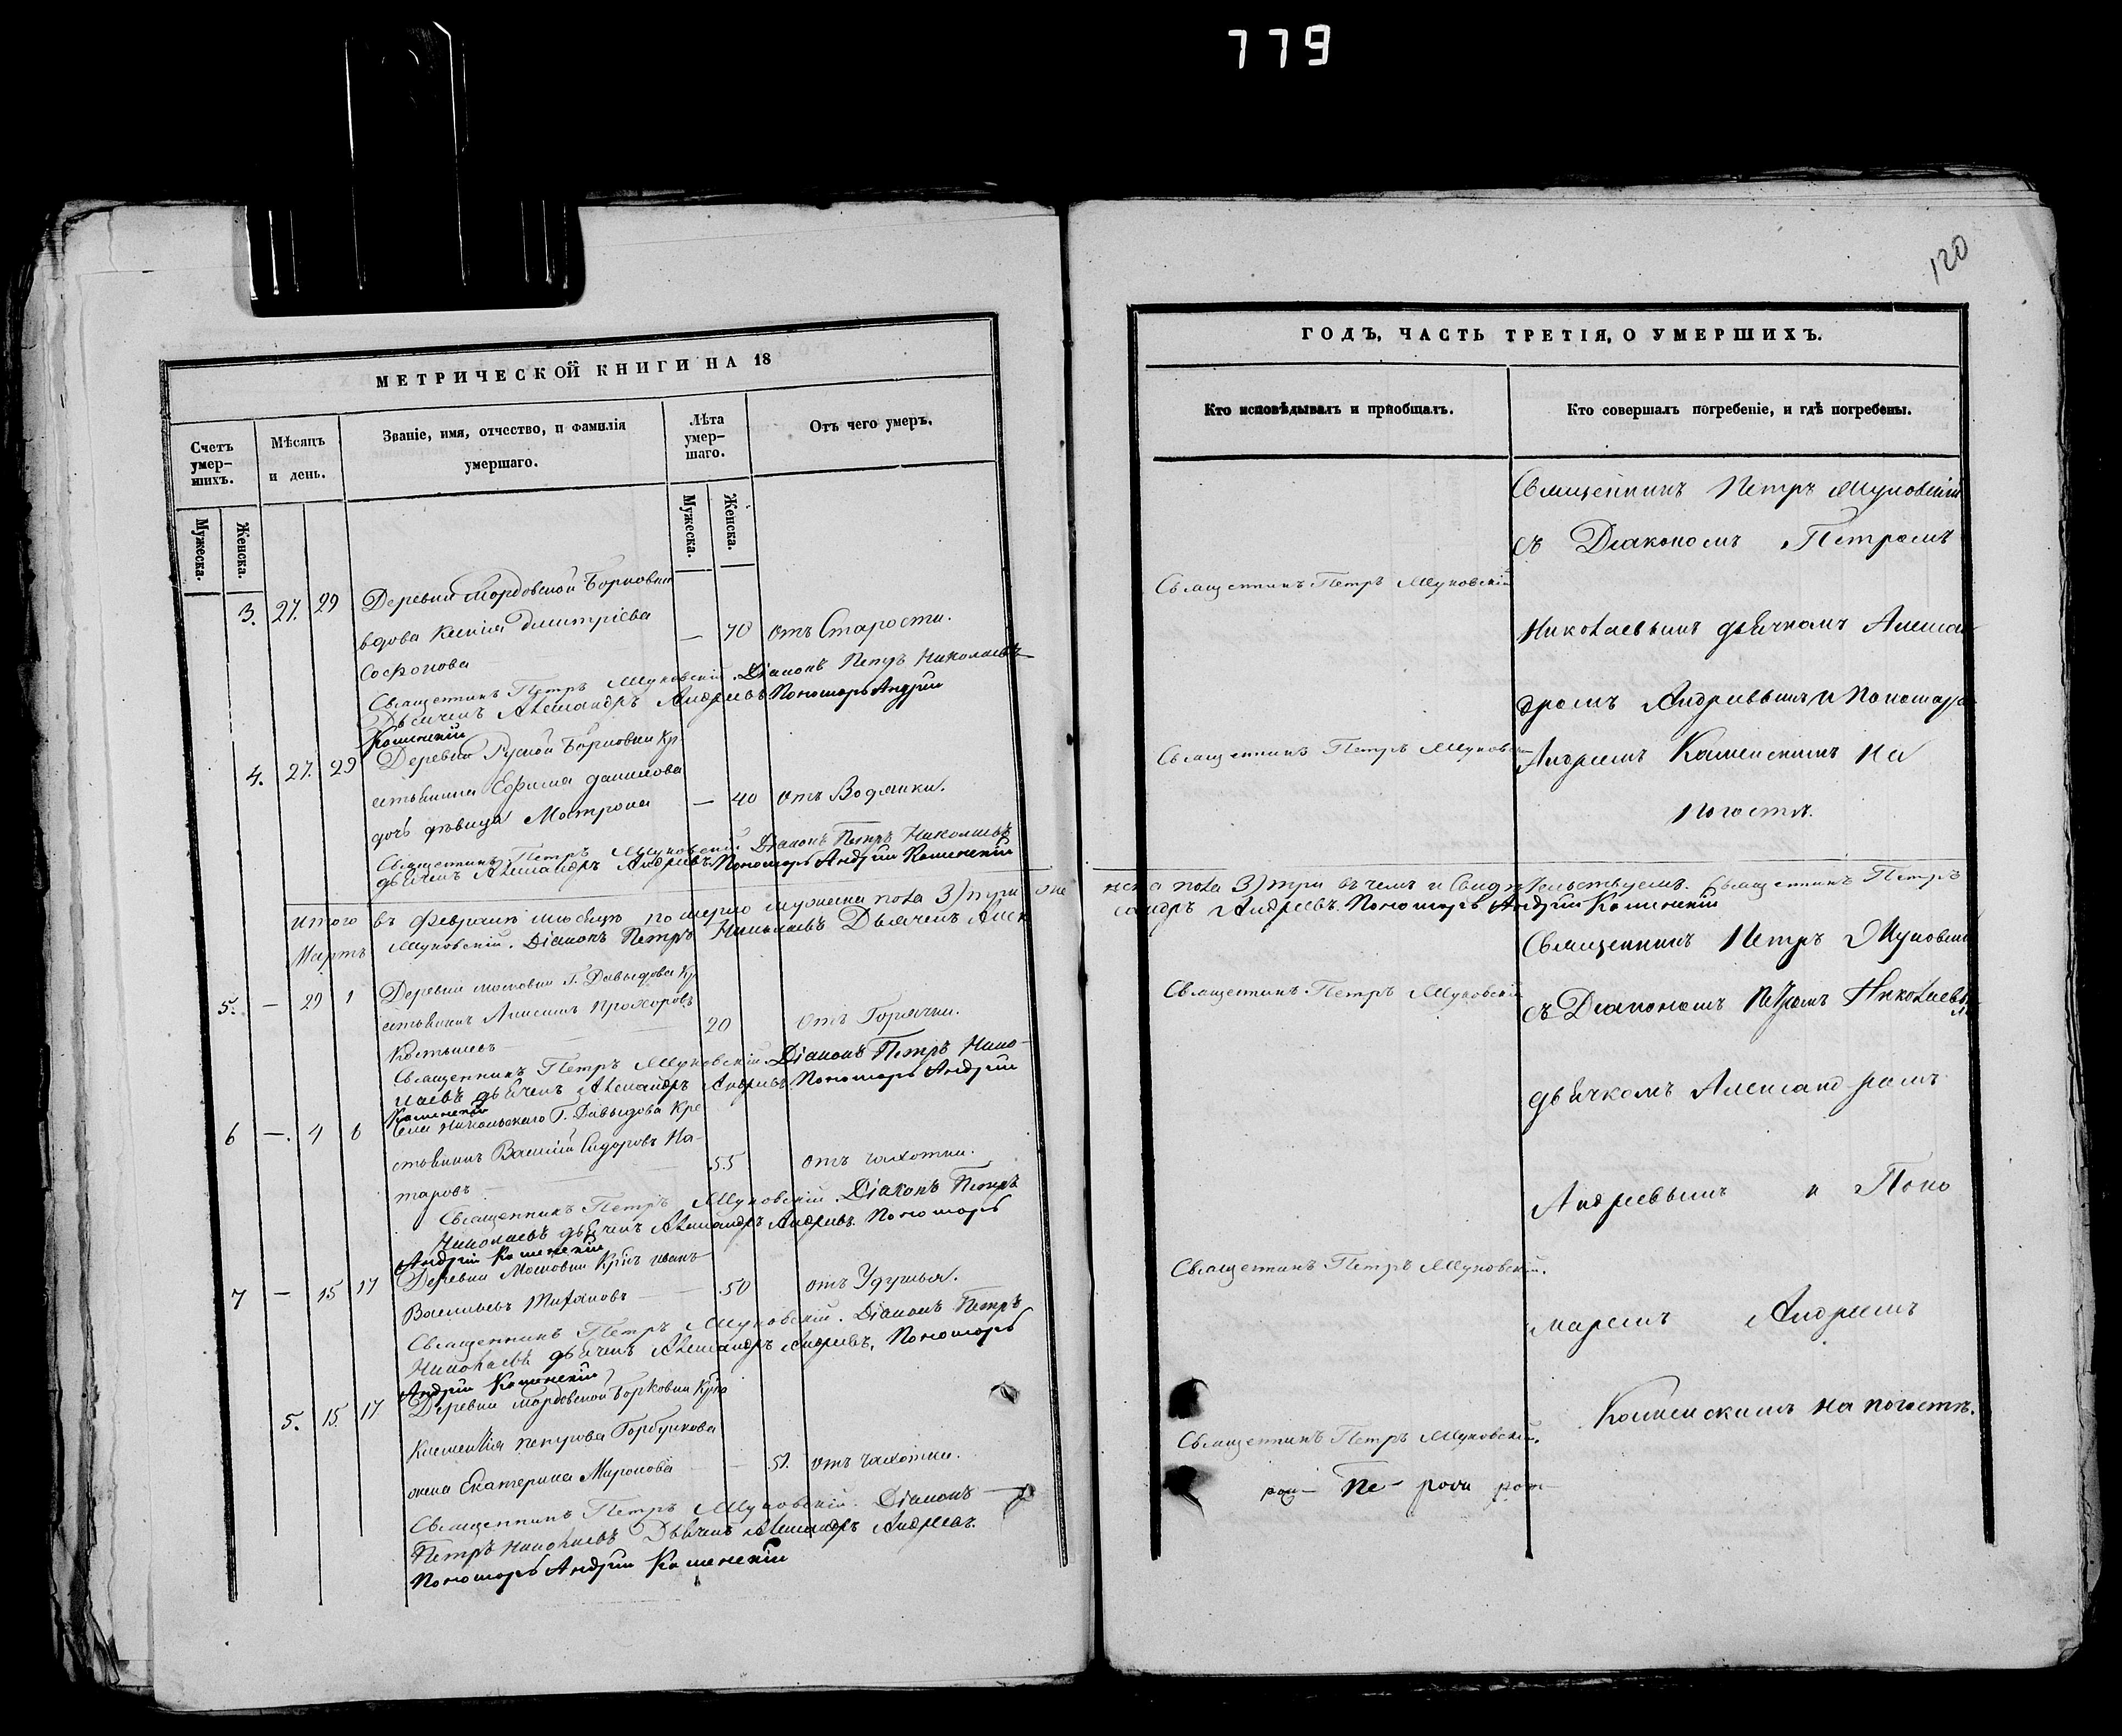 779
120
МЕТРИЧЕСКОЙ КНИГИ НА 18
Счетъ умер-шихъ.
Мѣсяцъ и день.
Званіе, имя, отчество, и фамилія умершаго.
Лѣта умер-шаго.
Отъ чего умеръ.
Мужеска.
Женска.
Мужеска.
Женска.
3. 27. 29 Деревни Мордовской Борковки
вдова Ксенія Дмитріева — 70 отъ Старости.
Софонова
Священникъ Петръ Діаконъ Петръ Николаевъ
Дьячекъ Александръ Андреевъ Пономарь Андрей
Каменскій
4. 27. 29 Деревни Руской Борковки Кр
стьянина Ефима Данилова
дочь дѣвица Матрона — 40 отъ Водянки.
Священникъ Петръ Діаконъ Петръ Николаевъ
дьячекъ Александръ Андреевъ Пономарь Андрей Каменскій
Итого въ Февралѣ мѣсяцѣ померло мужеска пола 3) три жен
Мартъ Діаконъ Петръ Николаевъ Дьячекъ Алек
5. — 29 1 Деревни Г. Давыдова Кр
стьянинъ Прохоровъ 20 отъ Горячки.
Костылевъ
Священникъ Петръ Діаконъ Петръ Нико-
лаевъ дьячекъ Александръ Андреевъ Пономарь Андрей
Каменскій
6 — 4 6 Села Никольскаго Г. Давыдова Кре
стьянинъ Василій Сидоровъ На- 55 отъ чахотки.
таровъ
Священникъ Петръ Діаконъ Петръ
Николаевъ дьячекъ Александръ Андреевъ Пономарь
Андрей Каменскій
7 — 15 17 Деревни Крнъ Иванъ
Васильевъ 50 отъ Удушья.
Священникъ Петръ Діаконъ Петръ
Николаевъ дьячекъ Александръ Андреевъ, Пономарь
Андрей Каменскій
5. 15 17 Деревни Мордовской Борковки Крна
Петрова Горбункова
жена Екатерина Миронова — 51. отъ чахотки.
Священникъ Петръ Діаконъ
Петръ Николаевъ Дьячекъ Александръ Андреевъ.
Пономарь Андрей Каменскій
ГОДЪ, ЧАСТЬ ТРЕТІЯ, О УМЕРШИХЪ.
Кто исповѣдывалъ и пріобщалъ.
Кто совершалъ погребеніе, и гдѣ погребены.
Священникъ Петръ
съ Діакономъ Петромъ
Священникъ Петръ
Николаевымъ дьячкомъ Алексан
дромъ Андреевымъ и Пономаре
Священникъ Петръ
Андреемъ Каменскимъ на
погостѣ.
ска пола 3) три въ чемъ и Свидѣтельствуемъ. Священникъ Петръ
сандръ Андреевъ. Пономарь Андрей Каменскій
Священникъ Петръ
Священникъ Петръ
съ Діакономъ Петромъ Николаевы
дьячкомъ Александромъ
Андреевымъ и Поно
Священникъ Петръ
маремъ Андреемъ
Каменскимъ на погостѣ.
Священникъ Петръ